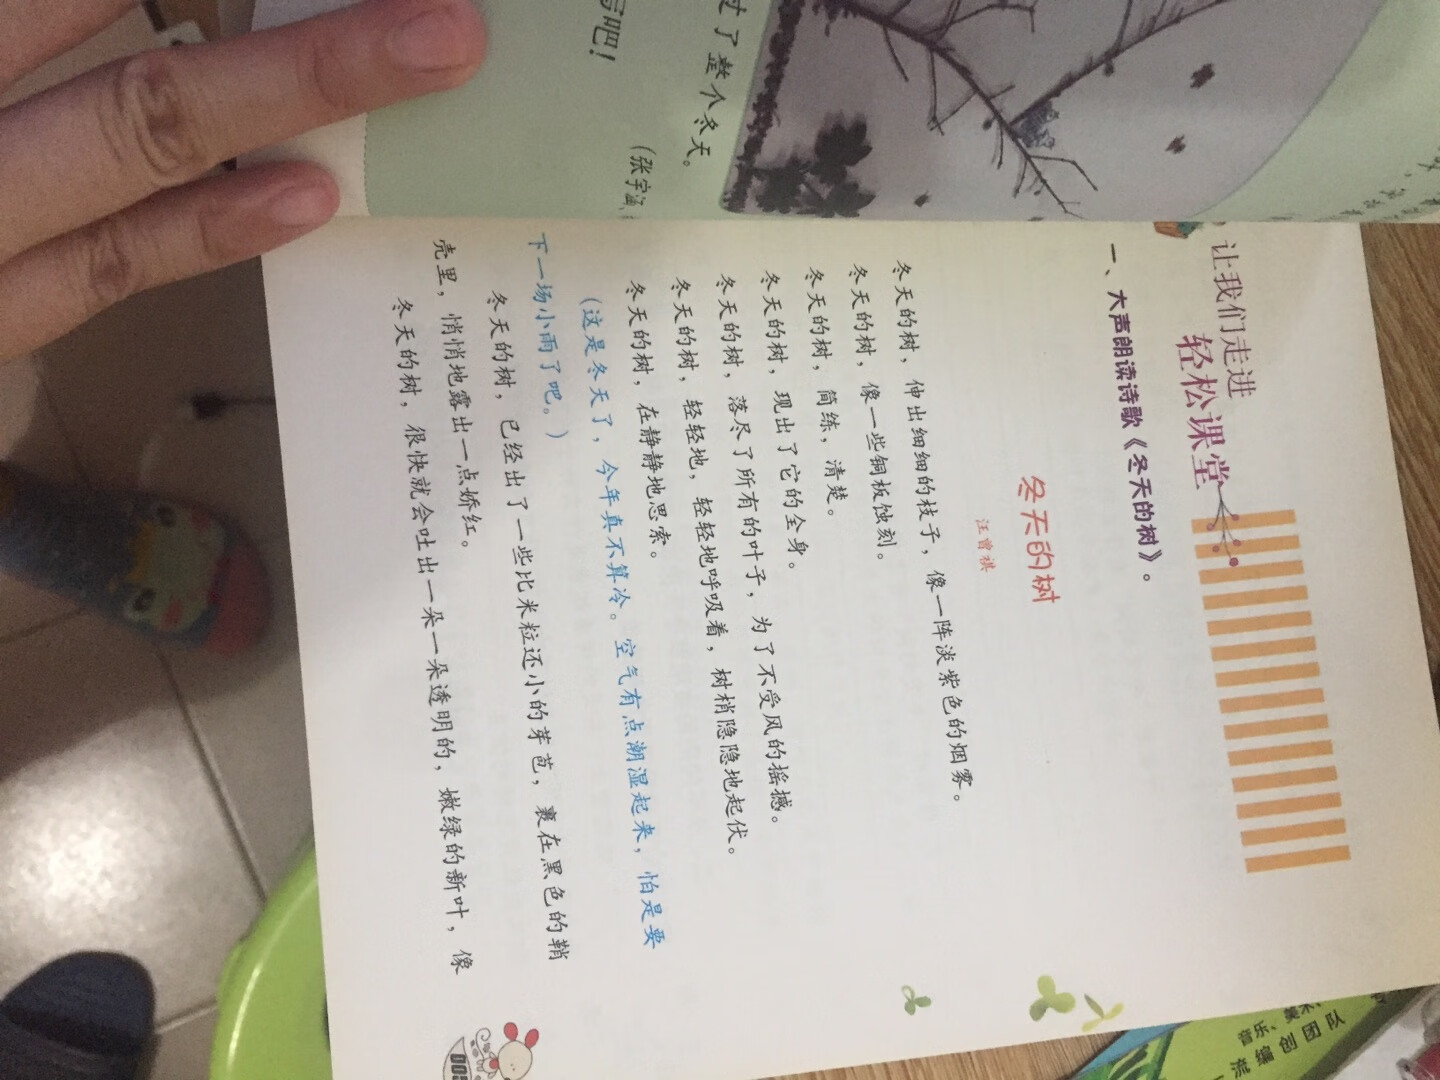 过了整个冬天。
写吧！
让我们走进
轻松课堂
一、大声朗读诗歌《冬天的树》。
冬天的树
汪曾祺
冬天的树，伸出细细的枝子，像一阵淡紫色的烟雾。
冬天的树，像一些铜板蚀刻。
冬天的树，简练，清楚。
冬天的树，现出了它的全身。
冬天的树，落尽了所有的叶子，为了不受风的摇撼。
冬天的树，轻轻地，轻轻地呼吸着，树梢隐隐地起伏。
冬天的树，在静静地思索。
（这是冬天了，今年真不算冷。空气有点潮湿起来，怕是要
下一场小雨了吧。）
冬天的树，已经出了一些比米粒还小的芽苞，裹在黑色的鞘
壳里，悄悄地露出一点娇红。
冬天的树，很快就会吐出一朵一朵透明的，嫩绿的新叶，像
005
音乐、美术、
流编创团队